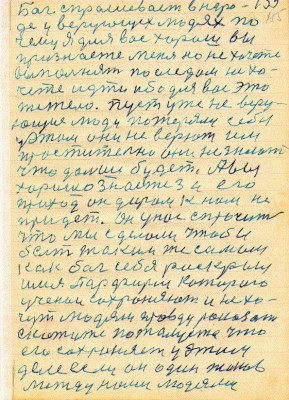 Бог спрашивает в наро- 155
де у верующих людях по 115
чему я для вас хорош вы
признаете меня но не хочете
выполнят последом не хо-
чите идти ибо для вас это
тяжело. Пуст уже не веру-
ющие люди потеряли себя
у этом они не верют им
простително они не знают
что далши будет. А вы
хорошо знаете з и его
приход он даром к нам не
придет. Он у нас спросит
что мы сделали чтоб и
быт таким же самым
как бог себя раскрыл
имя Парфирий которого
учение сохраняют и не хо-
чут людям правду показат
скажите пожалуста что
его сохраняет у этим
деле если он один живов
между нами людями